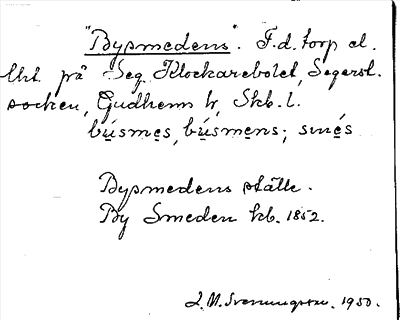 "Bysmedens". F.d. torp el.
lht. på Seg. Klockarebolet, Segerst.
socken, Gudhems hr, Skb. l.
bu̱smes, bu̱smens; sme̱s
Bysmedens ställe.
By Smeden kb. 1852.
J. M. Svenungsson. 1950.